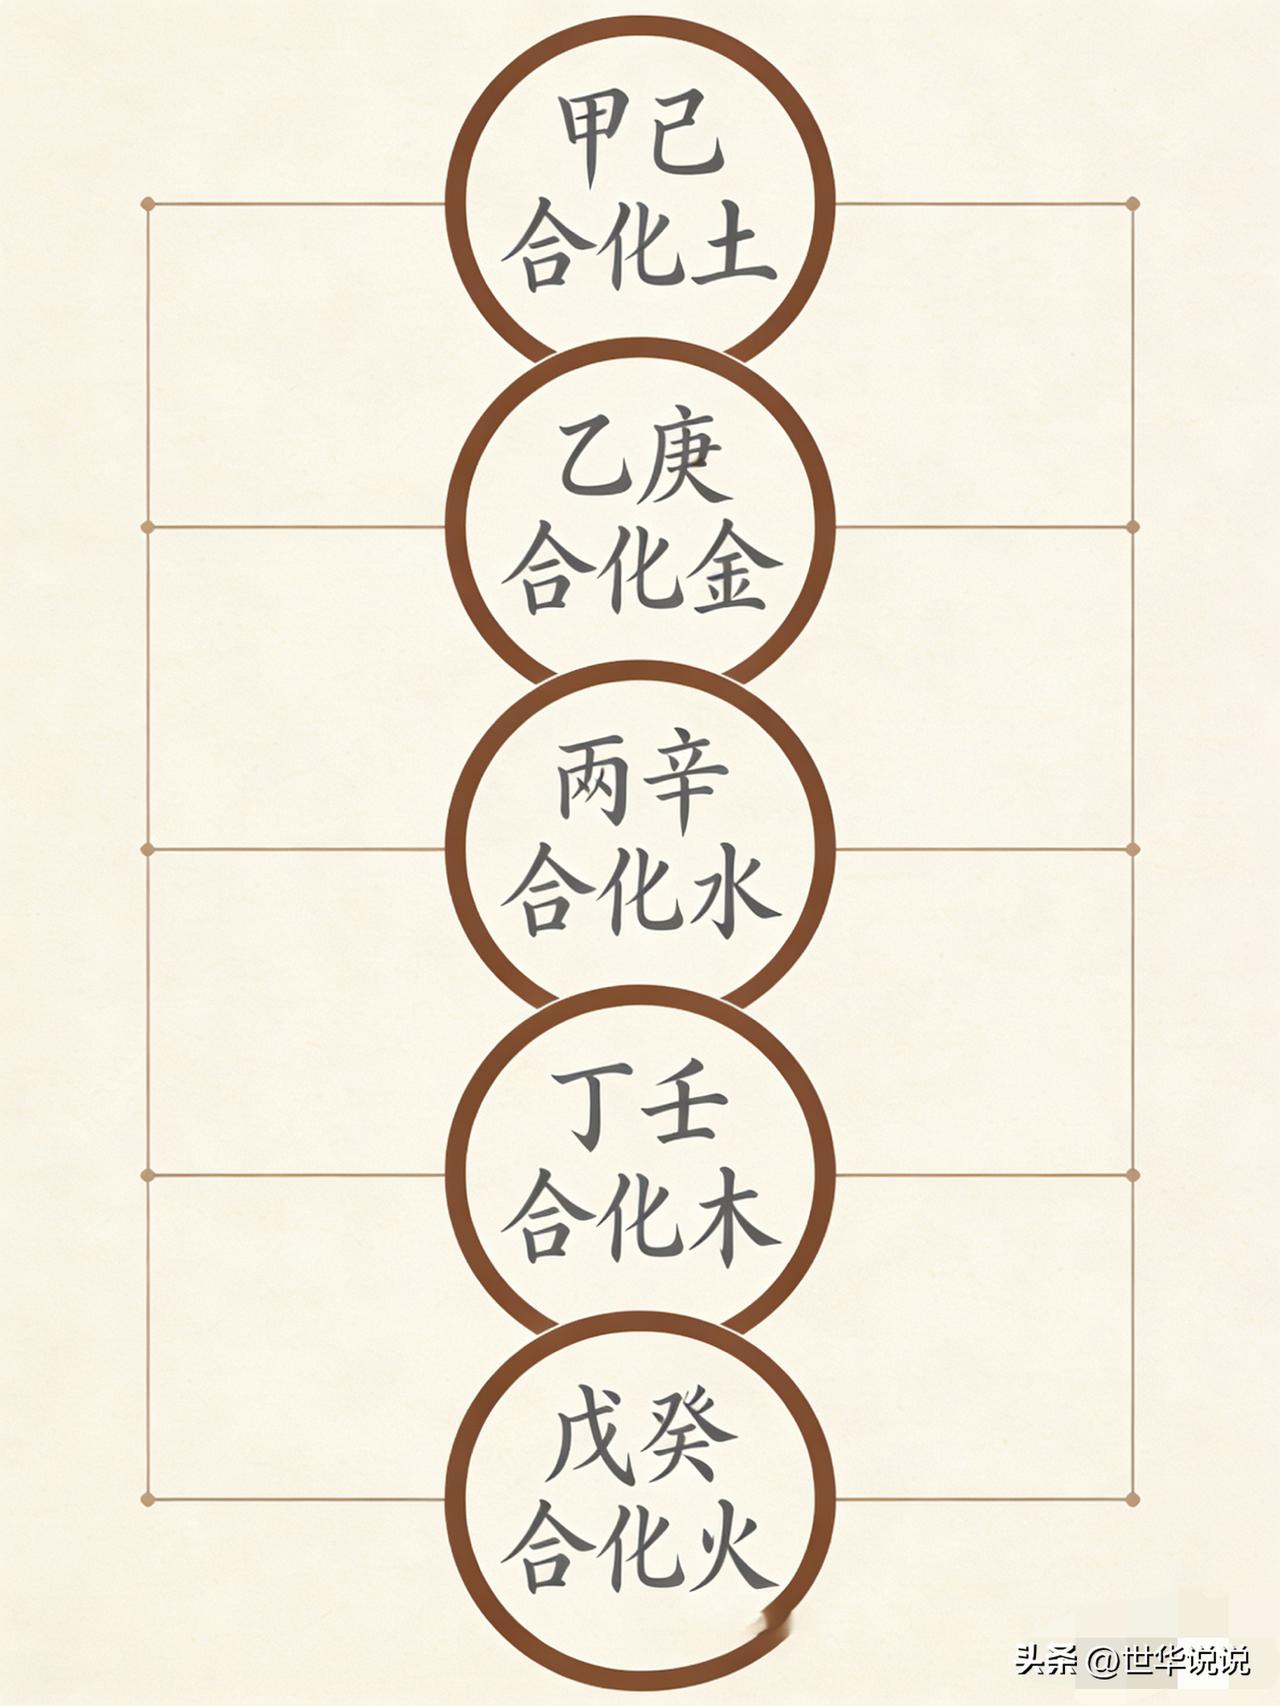 甲己
合化土
乙庚
合化金
両辛
合化水
丁壬
合化木
戊癸
合化火
头条 @世华说说